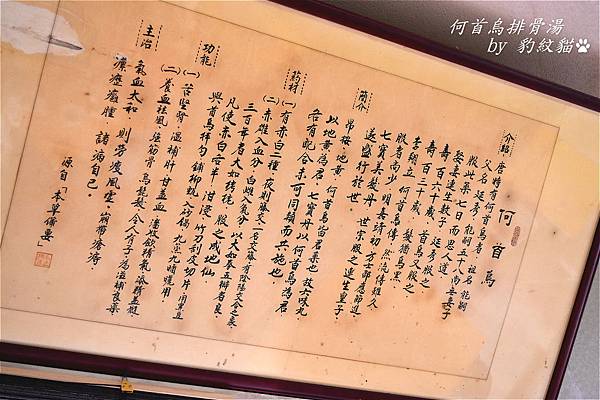 何首烏排骨湯
by 豹紋貓
何首烏
介紹
唐時有何首烏者 祖名能嗣
父名延秀 能嗣五十八尚無妻子
服此藥七日而思人道
娶妻連生數子 延秀服之
壽百六十歲 首烏又服之
壽百三十歲 髮猶烏黑
李翱立何首烏傳 然流傳雖久
服者尚少 明嘉靖初 方士邵應節進
七寶美髯丹 世宗服之連生皇子
遂盛行於世
簡介
昂按 地黃 何首烏皆君藥也 故六味丸
以地黃為君 七寶丹以何首烏為君
各有配合未可同類而共施也
药材
(一) 有赤白二種 夜則藤交 一名交藤 有陰陽交合之象
(二) 赤雄入血分 白雌入氣分 以大如拳五瓣者良
三百年者大如栲栳 服之成地仙
凡使赤白各半 泔浸 竹刀刮皮切片 用黑豆
與首烏拌勻 鋪柳甑 入砂鍋 九蒸九晒 㷟用
功能
(一) 苦堅腎 溫補肝 甘益血 濇收斂精氣 添精益髓
(二) 養血祛風 強筋骨 烏髭髮 令人有子 為滋補良藥
主治
氣血太和 則勞瘦風虛 崩帶瘡痔
瘰癧癰腫 諸病自已
源自「本草備要」